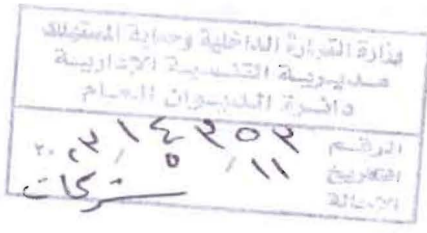 وزارة التجارة الداخلية وحماية المستهلك
مديرية التنمية الإدارية
دائرة الديوان العام
الرقم
التاريخ ١١ / ٥ /
الإحالة شركات